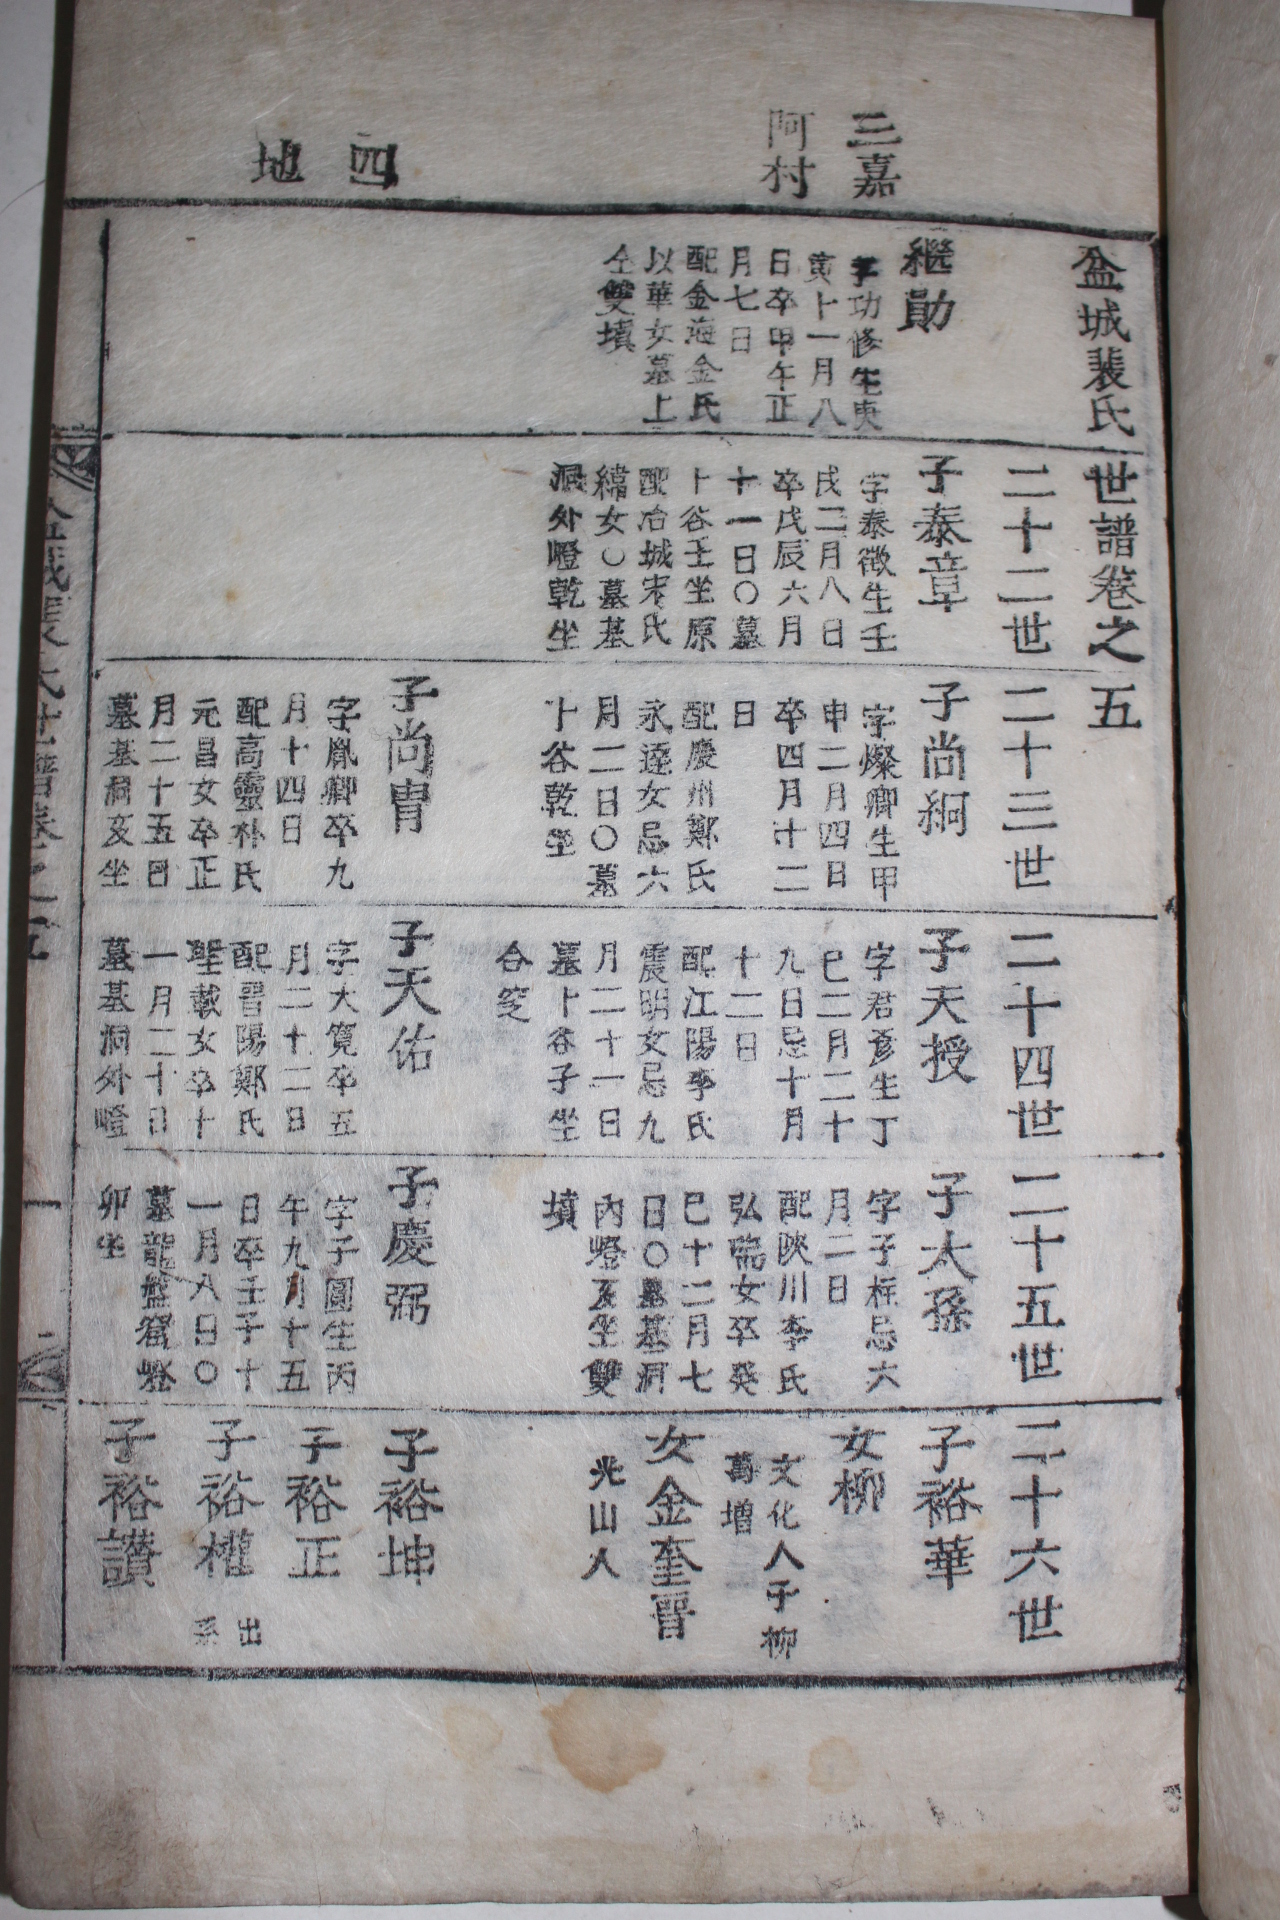 三嘉
阿村
四
地
盆城裴氏世譜卷之五
繼勛
字功修生庚
寅十一月八
日卒甲午正
月七日
配金海金氏
以華女墓上
仝雙墳
二十二世
子泰章
字泰徵生壬
戌二月八日
卒戊辰六月
十一日○墓
卜谷壬坐原
配冶城宋氏
緯女○墓基
洞外嶝乾坐
二十三世
子尚絅
字燦卿生甲
申二月四日
卒四月十二
日
配慶州鄭氏
永達女忌六
月二日○墓
卜谷乾坐
子尚冑
字胤卿卒九
月十四日
配高靈朴氏
元昌女卒正
月二十五日
墓基洞亥坐
二十四世
子天授
字君彦生丁
巳二月二十
九日忌十月
十二日
配江陽李氏
震明女忌九
月二十一日
墓卜谷子坐
合窆
子天佑
字大寬卒五
月二十二日
配晋陽鄭氏
聖載女卒十
一月二十日
墓基洞外嶝
二十五世
子太孫
字子 忌六
月二日
配陜川李氏
弘 女卒癸
巳十二月七
日○墓基洞
內嶝亥坐雙
墳
子慶弼
字子圓生丙
午九月十五
日卒壬子十
一月八日○
墓龍盤窟嶝
卯坐
二十六世
子裕華
女柳
文化人子柳
萬增
女金奎晋
光山人
子裕坤
子裕正
子裕權
出
系
子裕讚
盆城裴氏世譜卷之五
一